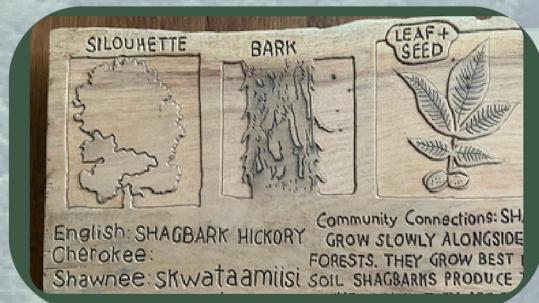 SILOUHETTE
BARK
LEAF +
SEED
English: SHAGBARK HICKORY
Cherokee:
Shawnee: skwataamiisi
Community Connections: SHA
GROW SLOWLY ALONGSIDE
FORESTS. THEY GROW BEST
SOIL SHAGBARKS PRODUCE